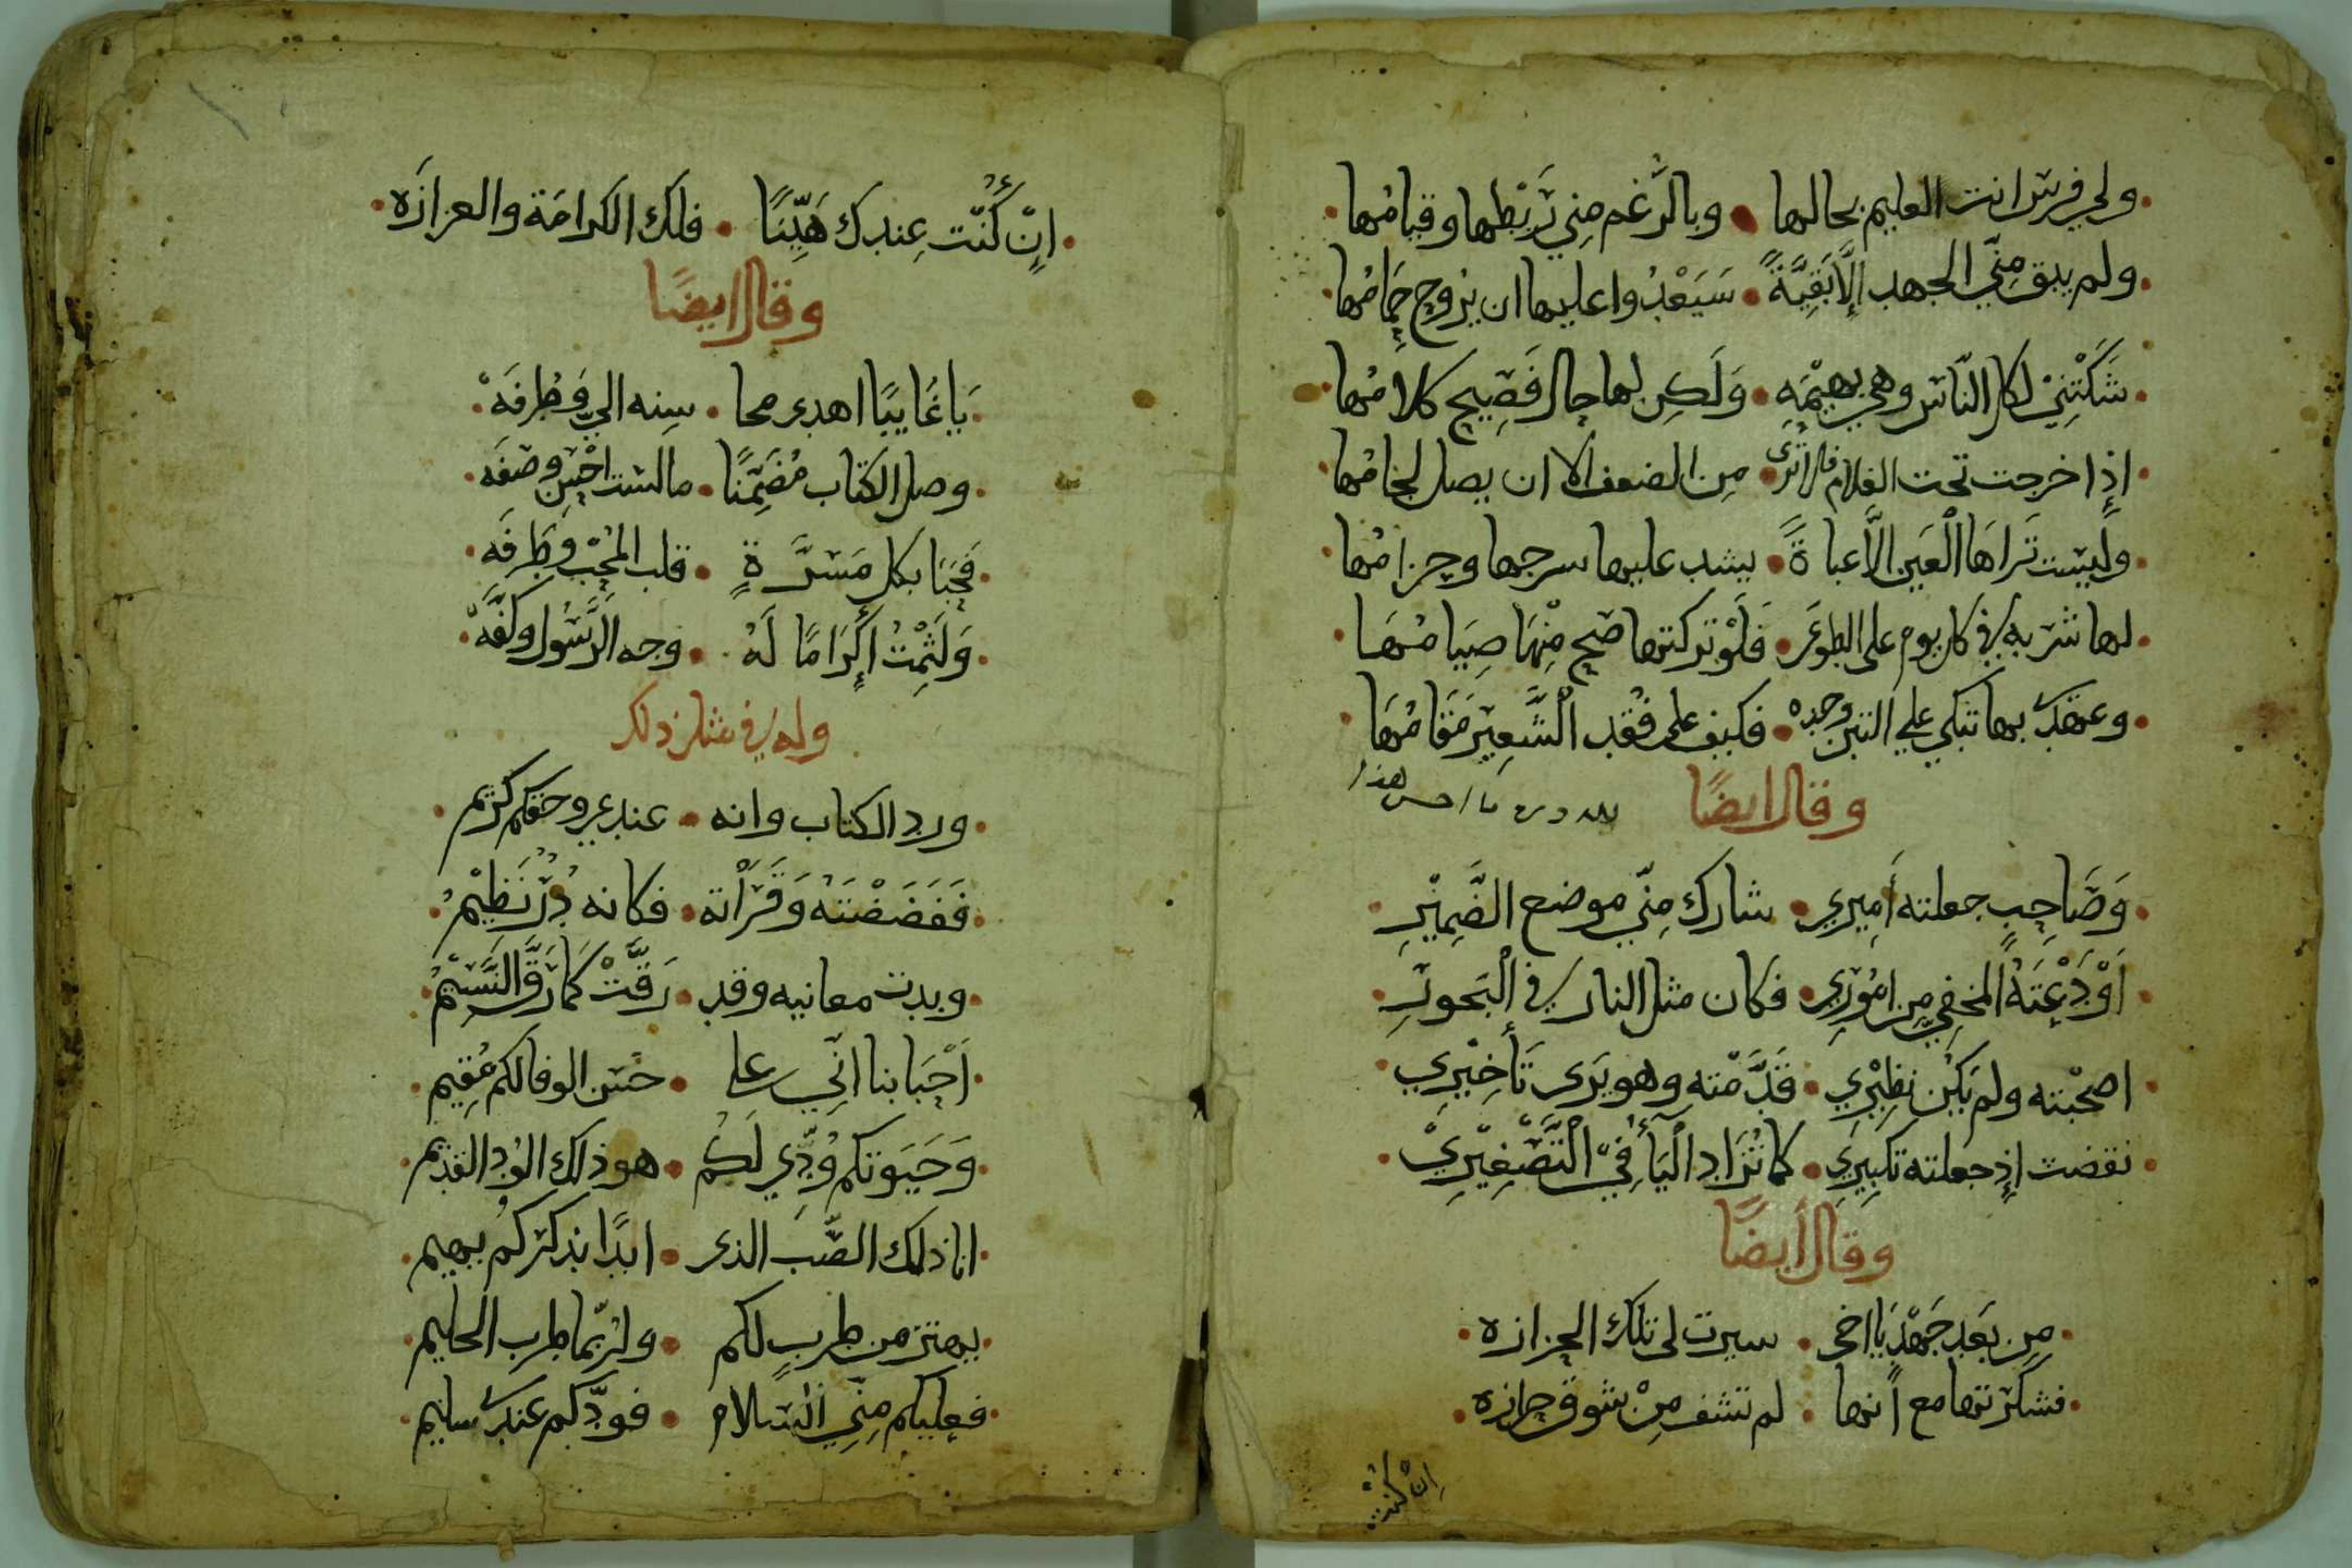 ولي فرس انت العليم بحالها • وبالرَّغم مِنِي رَبْطها وقيامُها
ولم يبق مِنِّي الجهد إِلَّا بَقِيَّةً • سَيَعْدُوا عليها ان يَزوح حِمَامُها
شَكَتْنِيْ لكل النّاس وهي بهيْمَه • وَلَكِن لها حال فَصِيح كلامُها
إِذا خرجت تحت الظلام فلا تُرَى • مِن الضعف الا ان يصل لجَامُها
ولَيسَت تَراهَا الْعَين الَّا عباةً • يشد عليها سرجها وحزامُها
لها شربه في كل يوم على الطوى • فَلَوْ تركتها صَحّ مِنْهَا صِيَامُهَا
وعهدي بها تبكي علي التبن وحده • فكيف على فَقْد الشَّعِيْر مَقَامُهَا
وقال ايضًا
لله دره ما احسن هذا
وَصَاحِبٍ جعلته أَمِيري • شارك مِنّي موضع الضَّمِيْرِ
أَوْدَعْتَهُ المخفِي مِن امُوْرِي • فكان مثل النار في الْبَخورِ
اصحْبته ولم يَكُن نظِيْرِي • قَدَّمْته وهو يَرَى تَأخِيْرِي
نقضت إِذ جعلته تكبِيرِي • كما تُزَاد الْيَأ فِيّ الْتَّصْغِيْرِيْ
وقال أيضًا
مِن بَعد جَهْد يَا اخى • سيرت لى تلك الجزازه
فشكرتها مع أنها • لم تشف مِنْ شوق حزازه
اِنْ كنت
اِنْ كُنْت عِندك هَيِّنًا • فلك الكرامَة والعزازَه
وقال ايضًا
يَا غَايبًا اهدى محا • سِنه الي وَظُرفَهْ
وصل الكتاب مُضَمِّنًا • ما لست احْسِن وصَفَه
فَحَبَا بكل مَسَرَّةٍ • قلب المحُبْ وطَرفَه
وَلَثِمْتُ إِكْرَامًا لَهُ • وجه الرَّسُول وَكَفَّهْ
وله في مثل ذلك
ورد الكتاب وانه • عندي وحقكم كريم
فَفَضَضْتَهُ وَقَرَأْته • فكانه دُرّ نَظِيْمُ
وبدت معانيه وقد • رَقَّتْ كَمَا رَقَّ النَّسِيْمُ
أَحْبَابنا انِّي على • حُسْن الوفا لكم مُقِيم
وَحَيَوتكم وُدِّي لَكُم • هو ذلك الوُد القديم
انا ذلك الصَّب الذى • ابدًا بذكركُم يهيم
يهتز من طربٍ لكم • ولرُبّما طرب الحليم
فعليكم مِنِّي السَّلام • فودّكم عندي سليم